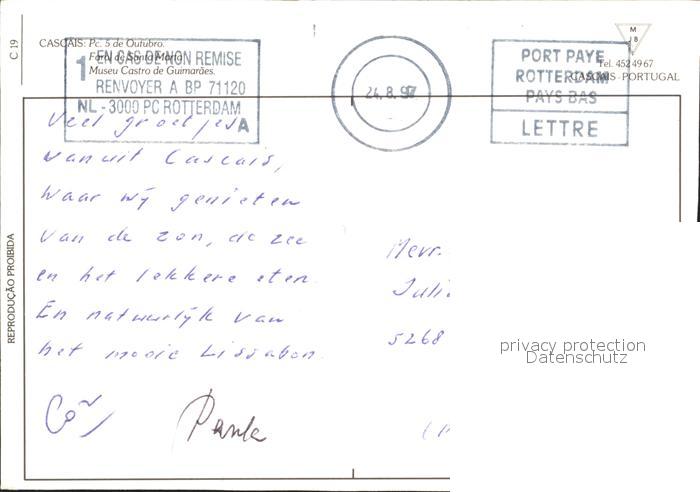 C 19
CASCAIS: Pc. 5 de Outubro.
Farol de Santa Marta.
Museu Castro de Guimarães.
1 EN CAS DE NON REMISE
RENVOYER A BP 71120
NL - 3000 PC ROTTERDAM
A
24.8.97
PORT PAYE
ROTTERDAM
PAYS-BAS
LETTRE
M
Tel. 452 49 67
CASCAIS - PORTUGAL
REPRODUÇÃO PROIBIDA
Veel groetjes
vanuit Cascais,
waar wij genieten
van de zon, de zee
en het lekkere eten.
En natuurlijk van
het mooie Lissabon.
Paula
Mevr.
Juli
5268
privacy protection
Datenschutz